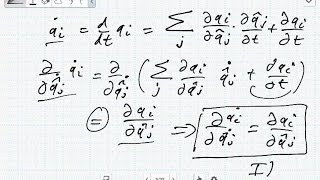 q̇ᵢ = d/dt qᵢ = ∑ⱼ ∂qᵢ/∂q̂ⱼ · ∂q̂ⱼ/∂t + ∂qᵢ/∂t
∂/∂q̂̇ⱼ q̇ᵢ = ∂/∂q̂̇ⱼ (∑ⱼ ∂qᵢ/∂q̂ⱼ q̂̇ⱼ + ∂qᵢ/∂t)
= ∂qᵢ/∂q̂ⱼ ⇒ ∂q̇ᵢ/∂q̂̇ⱼ = ∂qᵢ/∂q̂ⱼ
I)